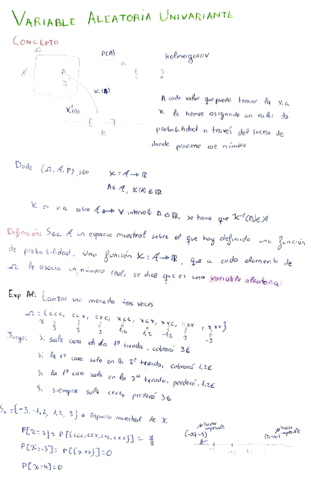 VARIABLE ALEATORIA UNIVARIANTE
CONCEPTO
Ω
P(A)
Kolmogorov
A
X(A)
A cada valor que puede tomar la v.a.
X le hemos asignado un valor de
probabilidad a través del suceso de
donde proviene ese número
Dado (Ω, A, P), sea X: A → ℝ
A ∈ A, X(A) ∈ ℝ
X es v.a. sobre A ⟺ ∀ intervalo B ⊂ ℝ, se tiene que X⁻¹(B) ∈ A
Definición: Sea A un espacio muestral sobre el que hay definido una función
de probabilidad. Una función X: A → ℝ, que a cada elemento de
Ω le asocia un número real, se dice que es una variable aleatoria.
Lanzar una moneda tres veces
Juego: Si sale cara en la 1ª tirada, cobrará 3€
Si la 1ª cara sale en la 2ª tirada, cobrará 1,2€
Si la 1ª cara sale en la 3ª tirada, perderá 1,2€
Si siempre sale cruz, perderá 3€
= {-3, -1,2, 1,2, 3} Espacio muestral de X
P[X=3] = P[{ccc, ccx, cxc, cxx}] =
P[X=-3] = P[{xxx}] =
P[X=4] = 0